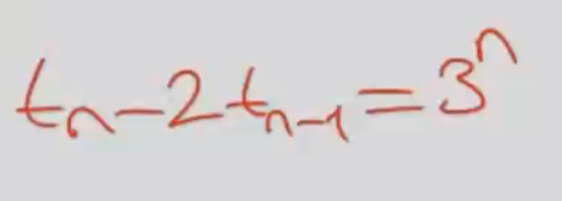 tₙ-2tₙ₋₁=3ⁿ